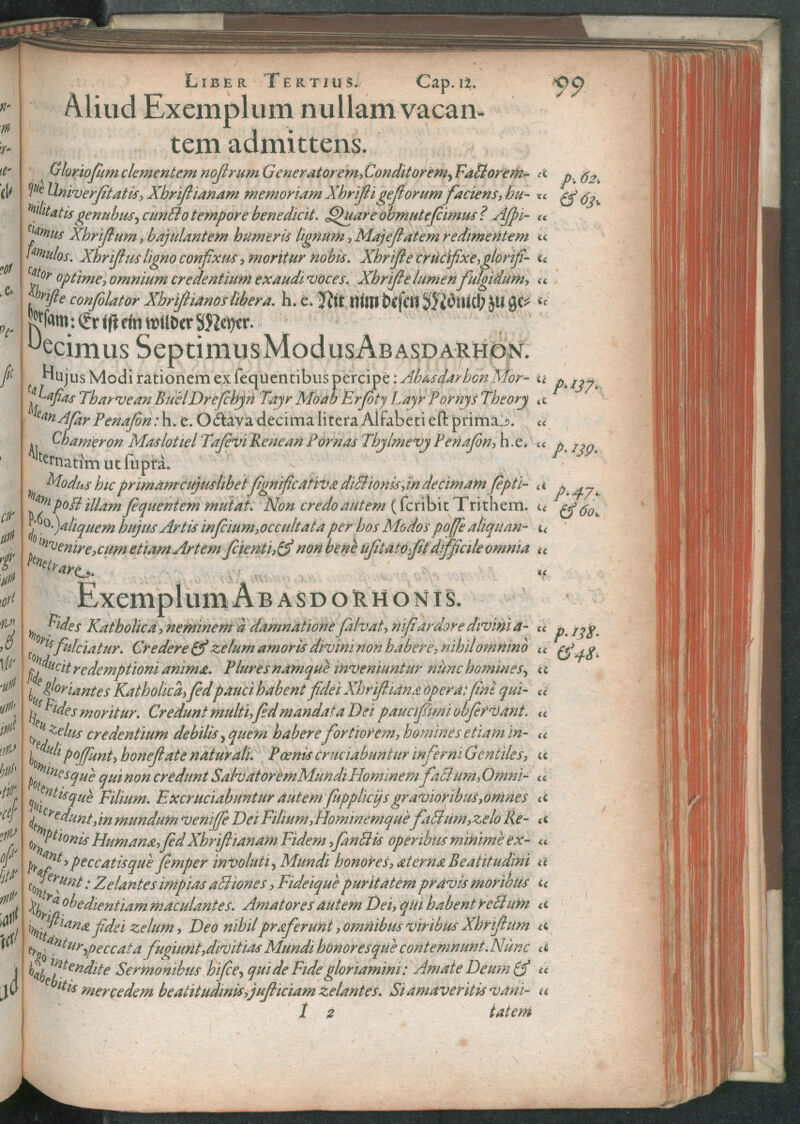 LIBER TERTIUS. Cap. 12. 99
Aliud Exemplum nullam vacan-
tem admittens.
Gloriosum clementem nostrum Generatorem, Conditorem, Factorem- “ p. 62.
que Universitatis, Xhristianam memoriam Xhristi gestorum faciens, hu- “ & 63.
militatis genubus, cuncto tempore benedicit. Quare obmutescimus? Aspi- “
ciamus Xhristum, bajulantem humeris lignum, Majestatem redimentem “
famulos. Xhristus ligno confixus, moritur nobis. Xhriste crucifixe, glorifi- “
cator optime, omnium credentium exaudi voces. Xhriste lumen fulgidum, “
Xhriste consolator Xhristianos libera. h. e. Nit nim desen Mönich zu ge- “
horsam: Er ist ein wilder Meyer.
Decimus Septimus Modus ABASDARHON.
Hujus Modi rationem ex sequentibus percipe: Abasdarhon Mor- “ p. 137.
ca Lasias Tharvean Buël Dreschyn Tayr Moab Ersoty Layr Pornys Theory “
Mean Asar Penason: h. e. Octava decima litera Alfabeti est prima. “
Chameron Maslotiel Tasevi Renean Pornas Thylmevy Penason, h. e. “ p. 139.
Alternatim ut suprà.
Modus hic primam cujuslibet significativæ dictionis, in decimam septi- “ p. 47.
mam post illam sequentem mutat. Non credo autem (scribit Trithem. “ & 60.
p. 60.) aliquem hujus Artis inscium, occultata per hos Modos posse aliquan- “
do invenire, cum etiam Artem scienti, & non benè usitato, sit difficile omnia “
penetrare. “
Exemplum ABASDORHONIS.
Fides Katholica, neminem à damnatione salvat, nisi ardore divini a- “ p. 138.
moris fulciatur. Credere & zelum amoris divini non habere, nihil omninò “ & 48.
conducit redemptioni animæ. Plures namquè inveniuntur nùnc homines, “
fide gloriantes Katholicâ, sed pauci habent fidei Xhristianæ opera: sinè qui- “
bus Fides moritur. Credunt multi, sed mandata Dei paucissimi observant. “
Heu zelus credentium debilis, quem habere fortiorem, homines etiam in- “
creduli possunt, honestate naturali. Pœnis cruciabuntur inferni Gentiles, “
hominesquè qui non credunt Salvatorem Mundi Hominem factum, Omni- “
potentisquè Filium. Excruciabuntur autem supplicijs gravioribus, omnes “
qui credunt, in mundum venisse Dei Filium, Hominemquè factum, zelo Re- “
demptionis Humanæ, sed Xhristianam Fidem, sanctis operibus minimè ex- “
ornant, peccatisquè semper involuti, Mundi honores, æternæ Beatitudini “
præferunt: Zelantes impias actiones, Fideiquè puritatem pravis moribus “
contra obedientiam maculantes. Amatores autem Dei, qui habent rectum “
Xhristianæ fidei zelum, Deo nihil præferunt, omnibus viribus Xhristum “
imitantur, peccata fugiunt, divitias Mundi honoresquè contemnunt. Nùnc “
ergo intendite Sermonibus hisce, qui de Fide gloriamini: Amate Deum & “
habebitis mercedem beatitudinis, justiciam zelantes. Si amaveritis vani- “
I 2 tatem